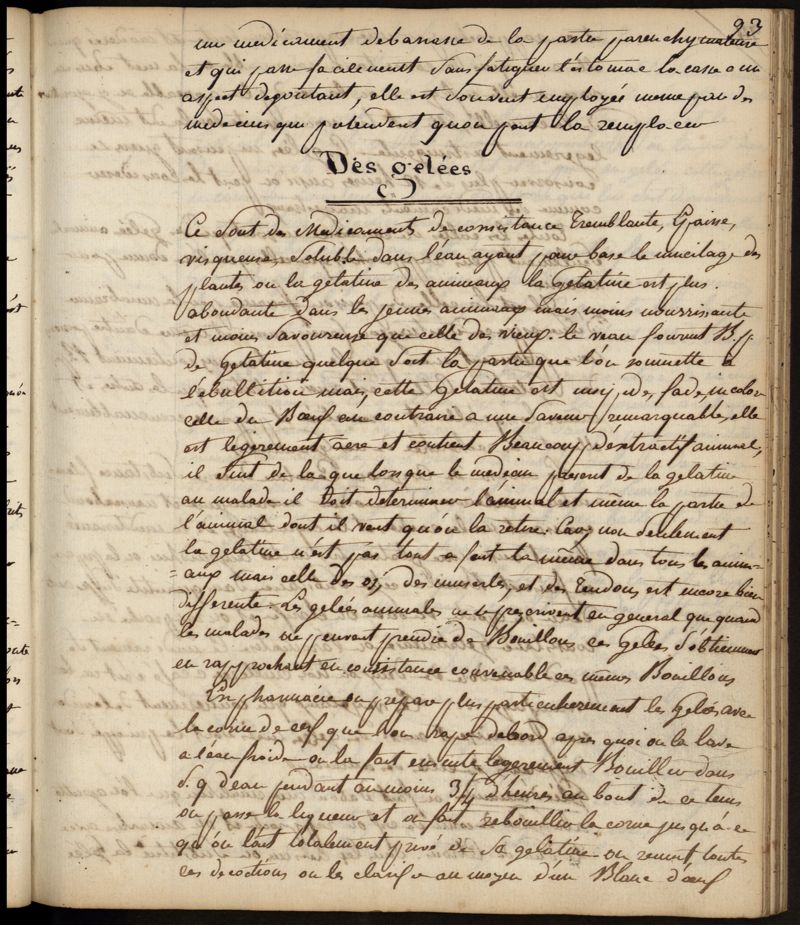 93
un medicament debarrassé de la partie parenchymateuse
et qui passe facilement sans fatiguer l'estomac la casse a un
aspect degoutant, elle est souvent employée meme par des
medecins qui pretendent quon peut la remplacer
Des gelées
Ce sont des Medicaments de consistance Tremblante, Epaisse,
visqueuse, soluble dans l'eau ayant pour base le mucilage des
plantes ou la gelatine des animeaux la Gelatine est plus
abondante dans les jeunes animeaux mais moins nourrissante
et moins savoureuse que celle des vieux. le veau fournit B.p
de Gelatine quelque soit la partie que l'on soumette a
l'ébullition mais, cette Gelatine est insipide, fade, incolore
celle du Bœuf au contraire a une saveur remarquable, elle
est legerement acre et contient Beaucoup d'extractif animal,
il suit de la que lorsque le medecin prescrit de la gelatine
au malade il Doit determiner l'animal et même la partie de
l'animal dont il veut qu'on la retire. Car, non seulement
la gelatine n'est pas tout a fait la même dans tous les anim=
=aux mais celle des os, des muscles, et des Tendons est encore bien
differente. Les gelées animales ne se prescrivent en general que quand
les malades ne peuvent prendre de Bouillons ces Gelées s'obtiennent
en rapprochant en consistance convenable ces mêmes Bouillons
En pharmacie on prepare plus particulierement les Gelées avec
la corne de cerf que l'on rape d'abord apres quoi on la lave
a l'eau froide on la fait ensuite legerement Bouillir dans
S.q d'eau pendant au moins 3/4 d'heures au bout de ce tems
on passe la liqueur et on fait rebouillir la corne jusqu'à ce
qu'on l'ait totalement privé de sa gelatine on reunit toutes
ces decoctions on les clarifie au moyen d'un Blanc d'œuf